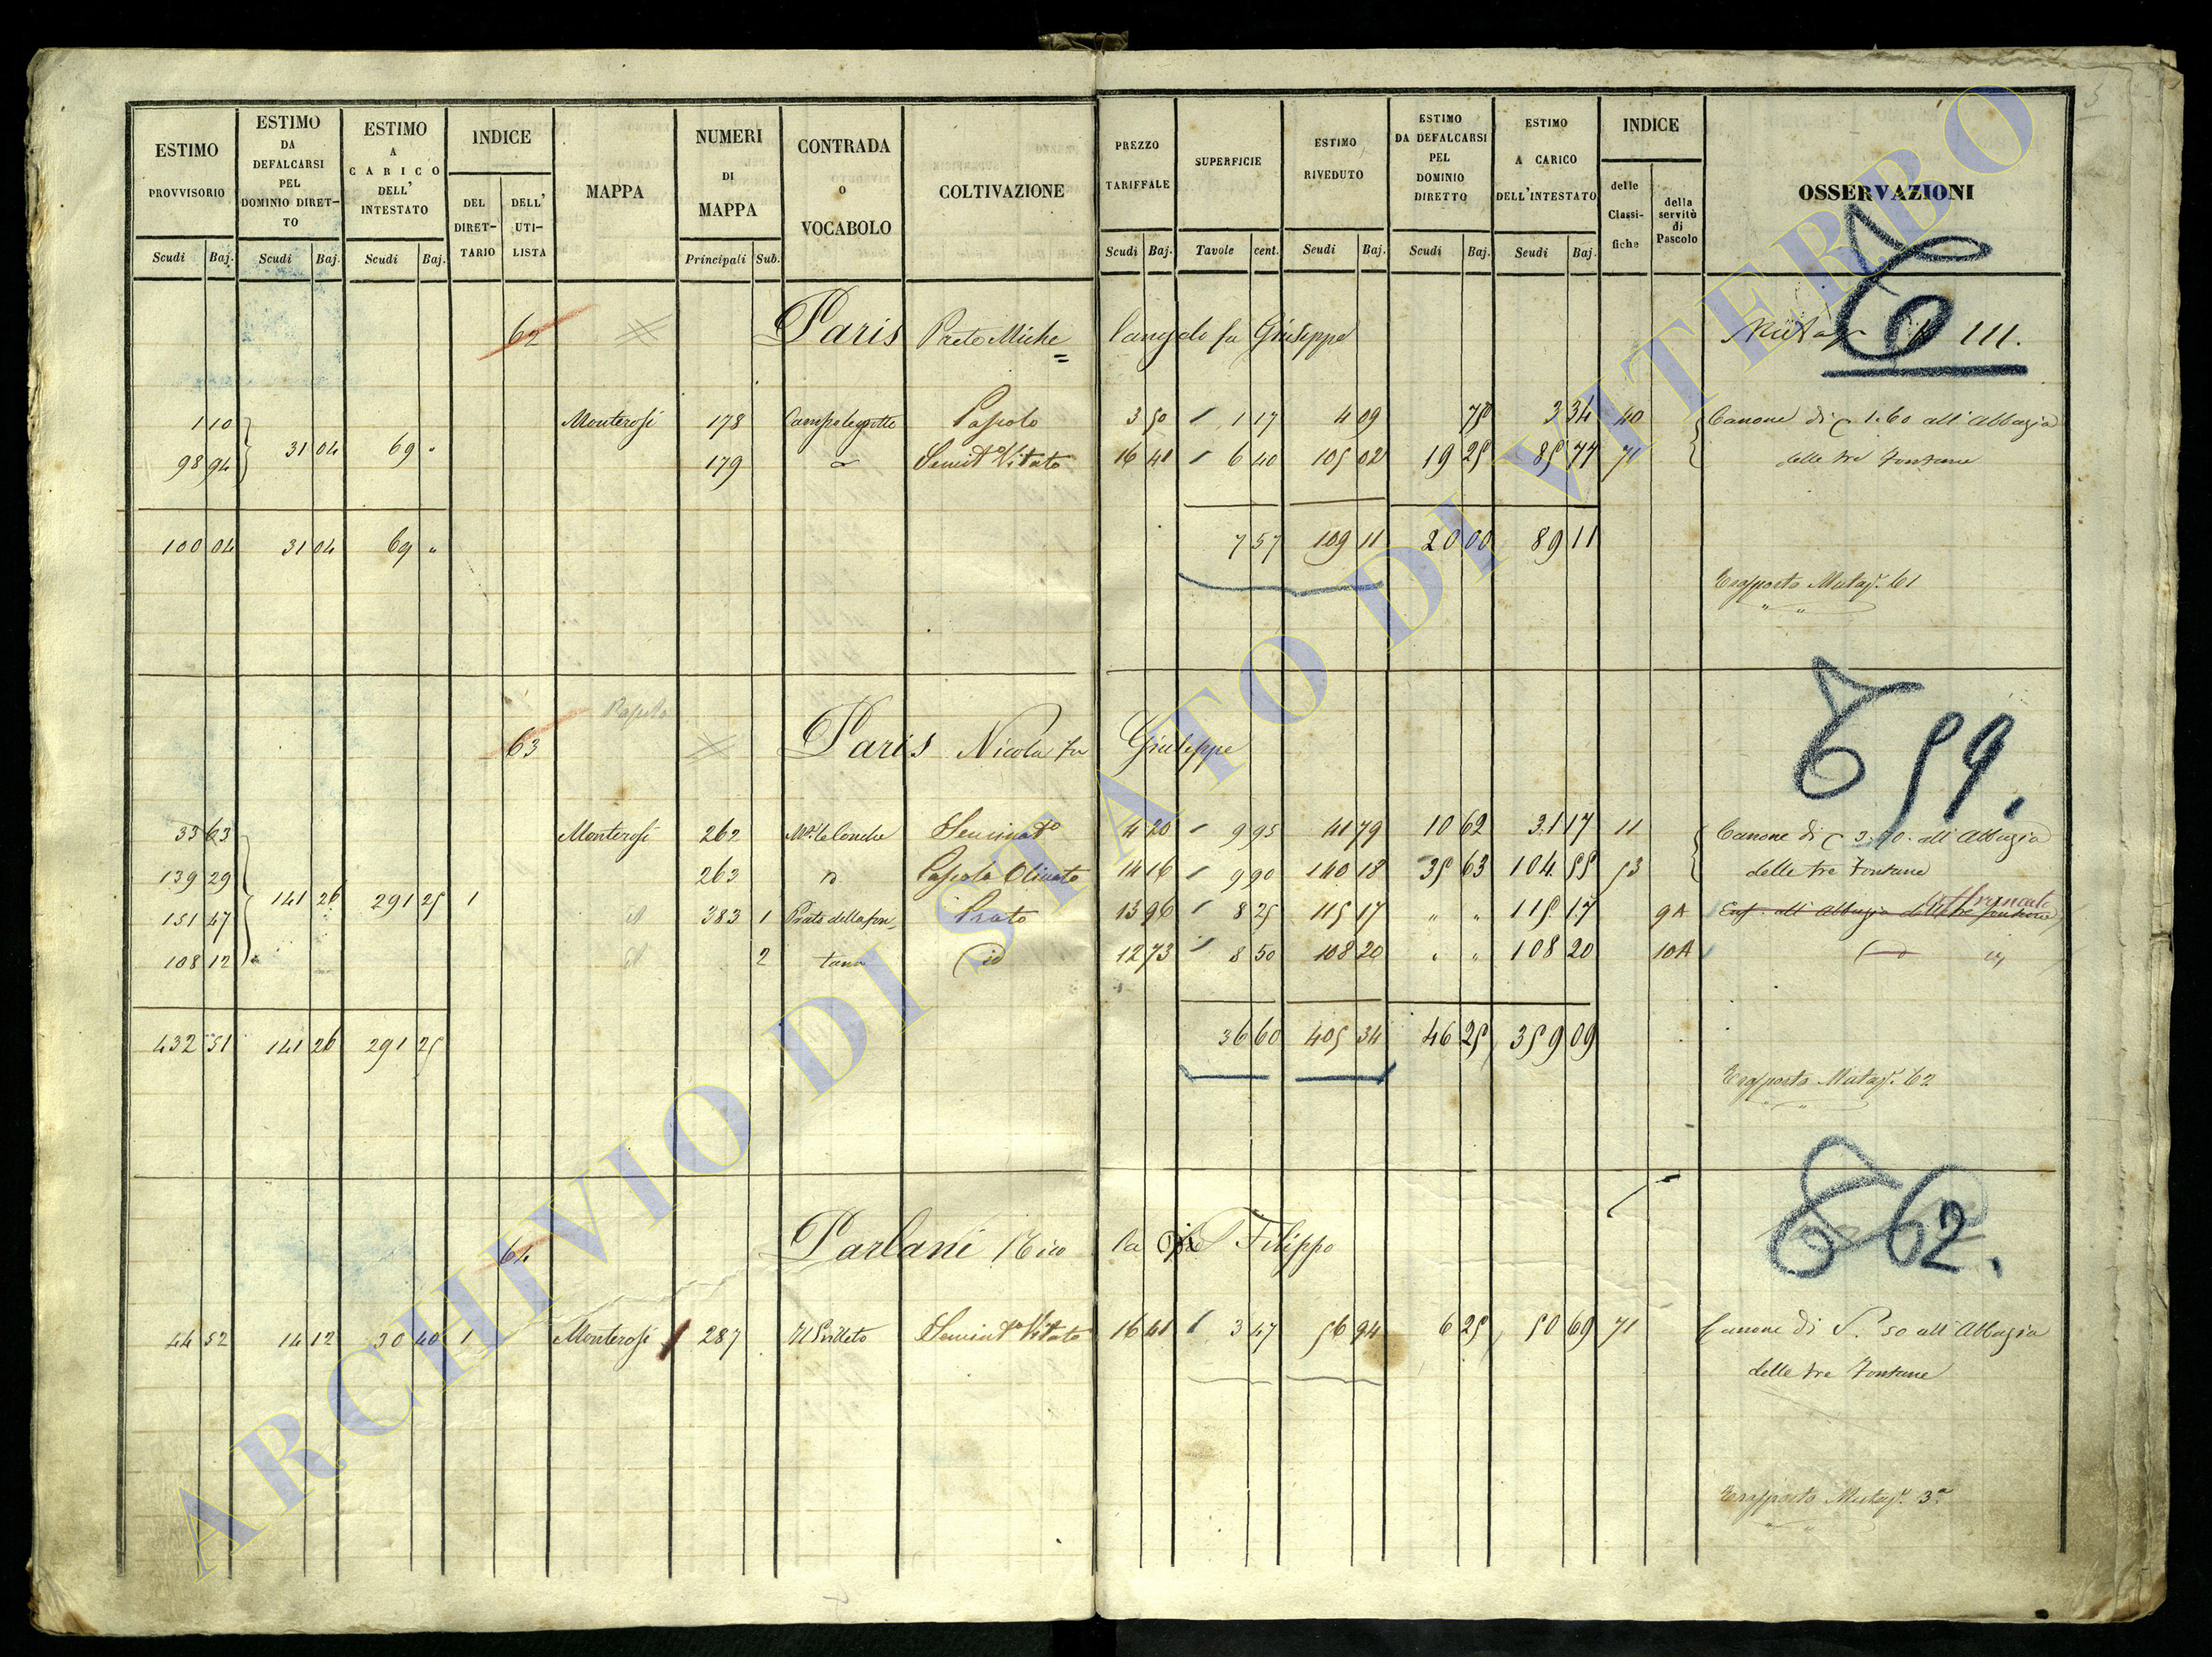 ESTIMO PROVVISORIO Scudi Baj.
ESTIMO DA DEFALCARSI PEL DOMINIO DIRETTO Scudi Baj.
ESTIMO A CARICO DELL' INTESTATO Scudi Baj.
INDICE DEL DIRETTARIO DELL' UTILISTA
MAPPA
NUMERI DI MAPPA Principali Sub.
CONTRADA O VOCABOLO
COLTIVAZIONE
PREZZO TARIFFALE Scudi Baj.
SUPERFICIE Tavole cent.
ESTIMO RIVEDUTO Scudi Baj.
ESTIMO DA DEFALCARSI PEL DOMINIO DIRETTO Scudi Baj.
ESTIMO A CARICO DELL'INTESTATO Scudi Baj.
INDICE delle Classifiche della servitù di Pascolo
OSSERVAZIONI
62 Paris Prete Miche= langelo fu Giuseppe 111.
1 10 Monterosi 178 Pascolo 3 50 1 17 4 09 75 3 34 40 Canone di 1.60 all'Abbazia
31 04 69 "
98 94 179 Semin.to Vitato 16 41 6 40 105 02 19 25 85 77 71 delle tre Fontane
100 04 31 04 69 " 7 57 109 11 20 00 89 11
Mutaz. 61
63 Paris Nicola fu Giuseppe 59.
33 63 Monterosi 262 Seminat.o 4 20 9 95 41 79 10 62 31 17 11 Canone di 3.70. all'Abbazia
139 29 263 Pascolo Olivato 14 16 9 90 140 18 35 63 104 55 53 delle tre Fontane
141 26 291 25 1
151 47 383 1 Prato della fon= Prato 13 96 8 25 115 17 " " 115 17 9A Enf. all'Abbazia delle tre fontane affrancato
108 12 2 tana id 12 73 8 50 108 20 " " 108 20 10A
432 51 141 26 291 25 36 60 405 34 46 25 359 09
Mutaz. 62
64 Parlani Filippo 62.
44 52 14 12 30 40 1 Monterosi 287 Semin.to Vitato 16 41 3 47 56 94 6 25 50 69 71 Canone di 50 all'Abbazia
delle tre Fontane
Mutaz. 3a
ARCHIVIO DI STATO DI VITERBO